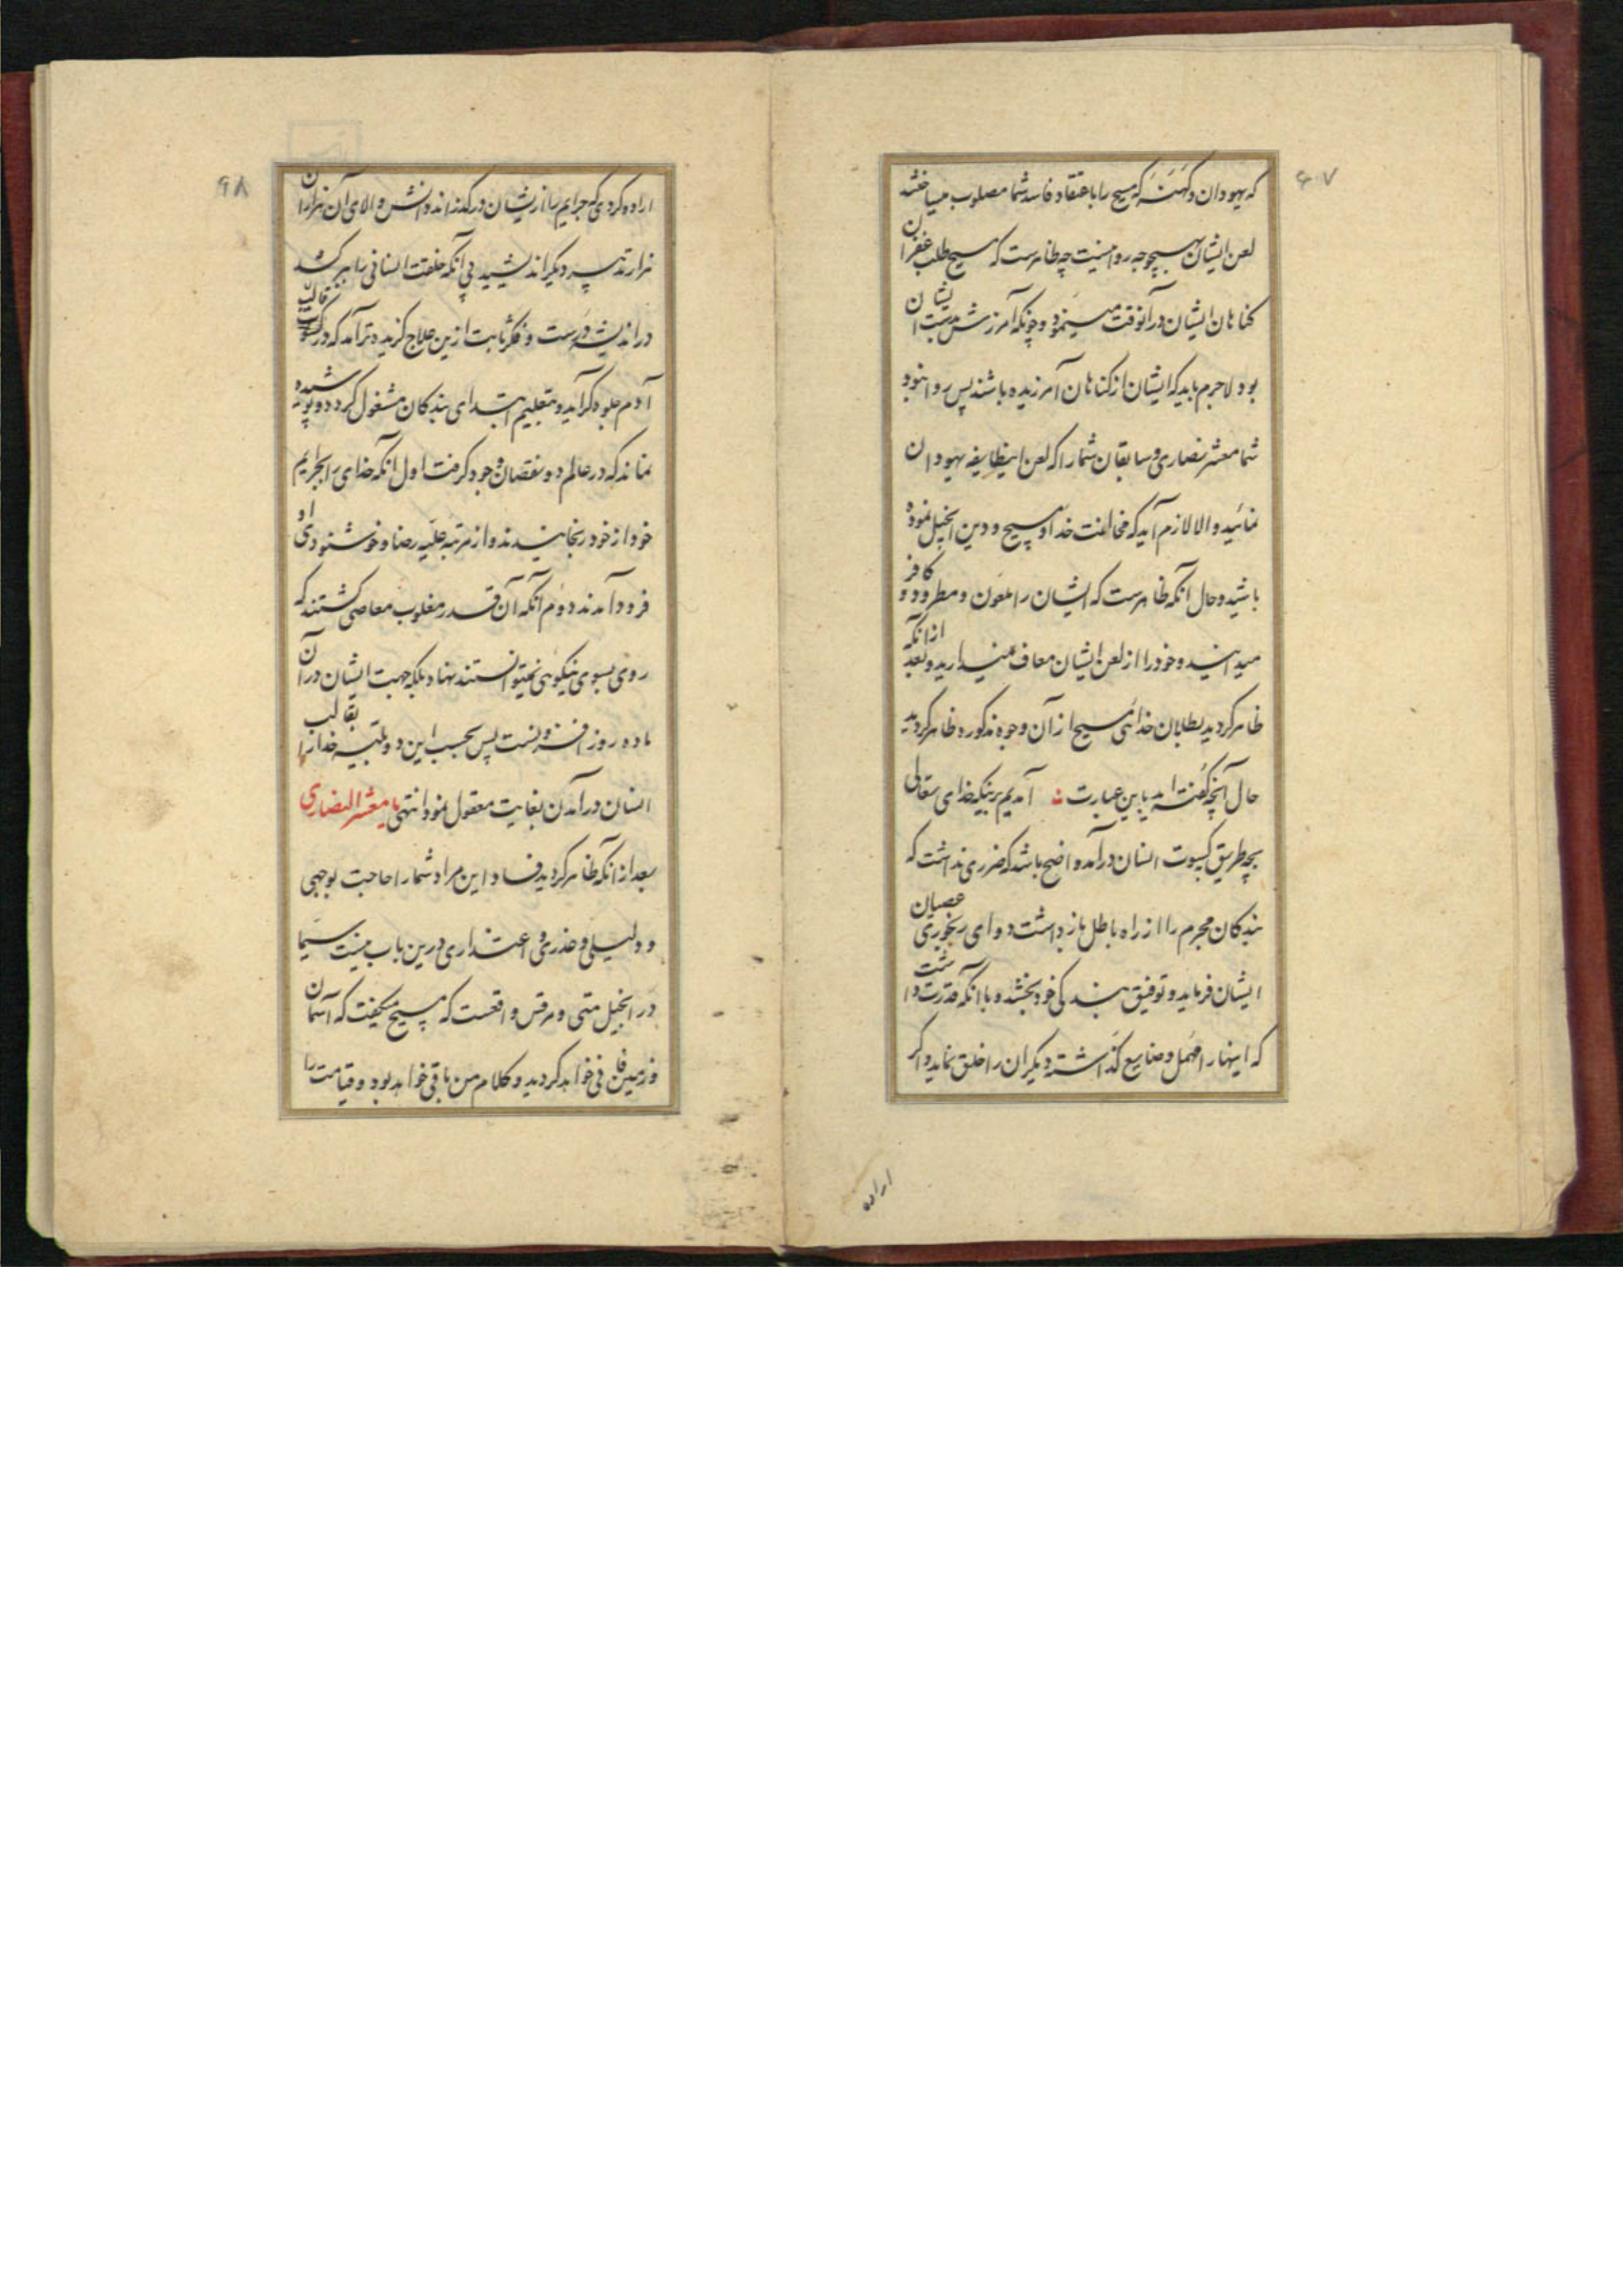 ۹۷
که یهودان و کهنه که مسیح را باعتقاد فاسد شما مصلوب میساختند
لعن ایشان بهیچوجه روا نیست چه ظاهرست که مسیح طلب غفران
کناهان ایشان در آنوقت مینمود و چونکه آمرزش بدست ایشان
بود لاجرم باید که ایشان از کناهان آمرزیده باشند پس روا نبود
شما معشر نصاری و سابقان شما را که لعن اینطایفه یهودان
نمائید والا لازم آید که مخالفت خدا و مسیح و دین انجیل نموده
باشید و حال آنکه ظاهرست که ایشان را ملعون و مطرود و کافر
میدانید و خود را از لعن ایشان معاف نمیدارید و بعد از آنکه
ظاهر کردید بطلان خدائی مسیح از آن وجوه مذکوره ظاهر کردید
حال آنچه کفته اید باین عبارت آمدیم برینکه خدای تعالی
بچه طریق بکسوت انسان درآمد واضح باشد که ضرری نداشت که
بندکان مجرم را از راه باطل بازداشت دوای رنجوری عصیان
ایشان فرماید و توفیق بندکی خود بخشد و با آنکه قدرت داشت
که اینها را مهمل و ضایع کذاشته دیکران را خلق نماید و اکر
اراده
۹۸
اراده کردی که جرایم را از ایشان در کذراند دانش والای آن هزاران
هزار تدبیر دیکر اندیشید بی آنکه خلقت انسانی را ببر کشد
در اندیشه درست و فکر ثابت ازین علاج کزیده تر آمد که در کسوت قالب
آدم جلوه کر آید و بتعلیم ابتدای بندکان مشغول کردد و پوشیده
نماند که در عالم دو نقصان وجود کرفت اول آنکه خدای را بجرایم
خود از خود رنجانیدند و از مرتبه علیه رضا و خوشنودی او
فرود آمدند دوم آنکه آن قدر مغلوب معاصی کشتند که
روی بسوی نیکوئی نمیتوانستند نهاد بلکه جهت ایشان در آن
ماده روز افزونست پس بحسب این دو بلیه خدا را بقالب
انسان در آمدن بغایت معقول نمود انتهی یا معشر النصاری
بعد از آنکه ظاهر کردید فساد این مراد شما را حاجت بوجهی
و دلیلی و عذری و اعتذاری درین باب نیست سیما
در انجیل متی و مرقس واقعست که مسیح میکفت که آسمان
و زمین فانی خواهد کردید و کلام من باقی خواهد بود و قیامت را